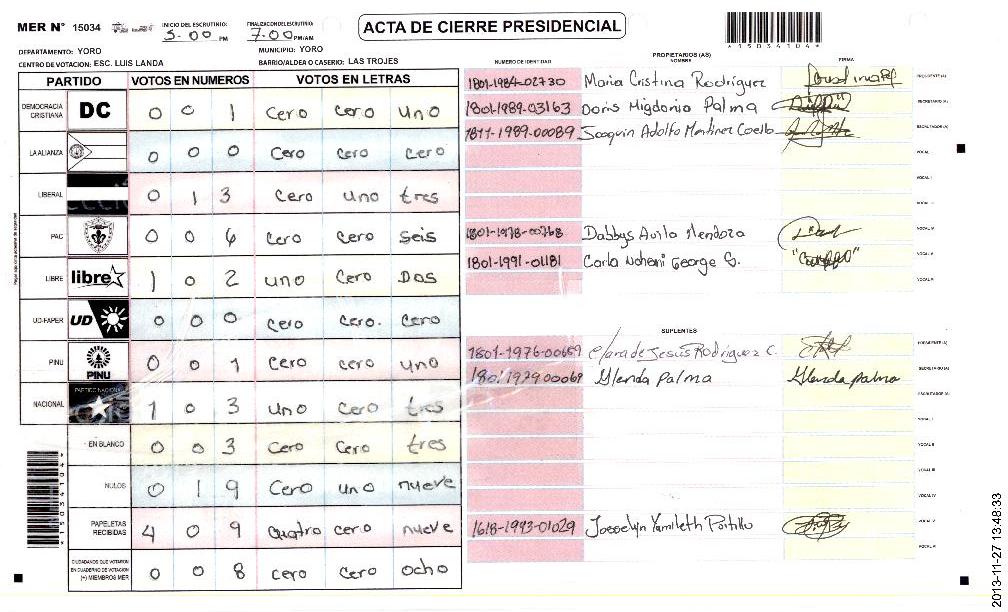 MER N° 15034 INICIO DEL ESCRUTINIO: 5:00 PM FINALIZACION DEL ESCRUTINIO: 7:00 PM/AM
ACTA DE CIERRE PRESIDENCIAL
*15034104*
DEPARTAMENTO: YORO MUNICIPIO: YORO
CENTRO DE VOTACION: ESC. LUIS LANDA BARRIO/ALDEA O CASERIO: LAS TROJES
PARTIDO VOTOS EN NUMEROS VOTOS EN LETRAS
DEMOCRACIA CRISTIANA DC 0 0 1 cero cero uno
LA ALIANZA 0 0 0 cero cero cero
LIBERAL 0 1 3 cero uno tres
PAC 0 0 6 cero cero seis
LIBRE libre 1 0 2 uno cero Dos
UD-FAPER UD 0 0 0 cero cero. cero
PINU PINU 0 0 1 cero cero uno
NACIONAL PARTIDO NACIONAL 1 0 3 uno cero tres
EN BLANCO 0 0 3 cero cero tres
NULOS 0 1 9 cero uno nueve
PAPELETAS RECIBIDAS 4 0 9 quatro cero nueve
CIUDADANOS QUE VOTARON EN CUADERNO DE VOTACION (+) MIEMBROS MER 0 0 8 cero cero ocho
*15034104*
PROPIETARIOS (AS)
NUMERO DE IDENTIDAD NOMBRE FIRMA
1801-1984-02730 Maria Cristina Rodríguez PRESIDENTE (A)
1801-1989-03163 Doris Migdonia Palma SECRETARIO (A)
1811-1989-00089 Joaquin Adolfo Martinez Coello ESCRUTADOR (A)
VOCAL I
VOCAL II
VOCAL III
1801-1978-00768 Dabbys Avila Mendoza VOCAL IV
1801-1991-01181 Carla Nohemi George G. VOCAL V
VOCAL VI
SUPLENTES
1801-1976-00659 Clara de Jesús Rodriguez C. PRESIDENTE (A)
1801-1979-00069 Glenda Palma Glenda Palma SECRETARIO (A)
ESCRUTADOR (A)
VOCAL I
VOCAL II
VOCAL III
VOCAL IV
1618-1993-01029 Josselyn Yamileth Portillo VOCAL V
VOCAL VI
2013-11-27 13:48:33